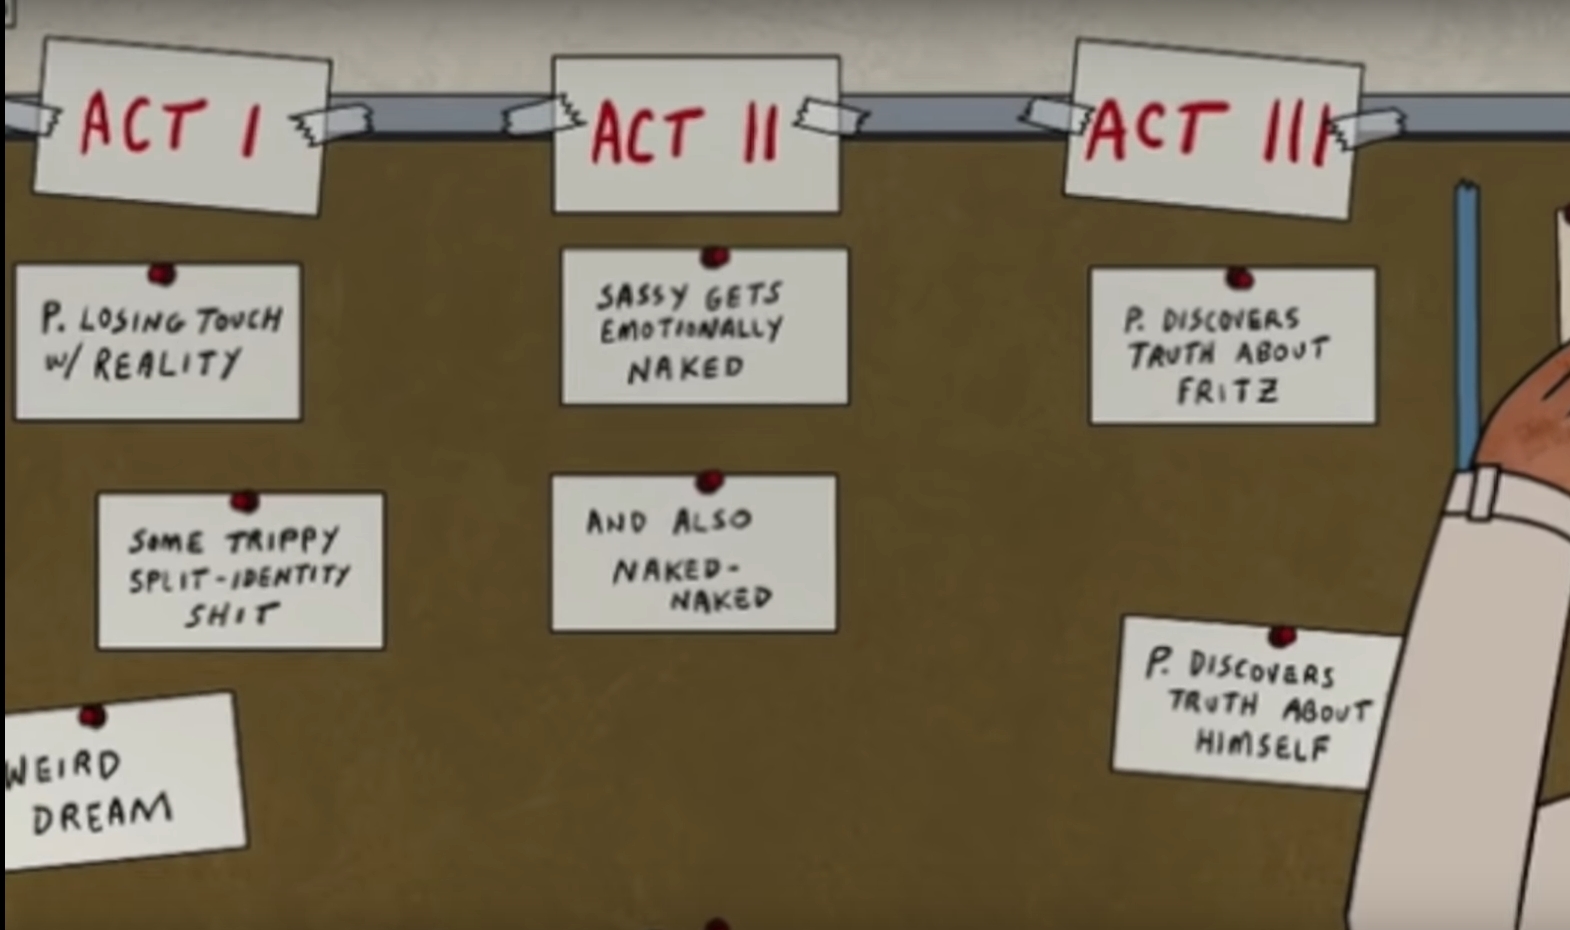 ACT I
P. LOSING TOUCH
W/ REALITY
SOME TRIPPY
SPLIT-IDENTITY
SHIT
WEIRD
DREAM
ACT II
SASSY GETS
EMOTIONALLY
NAKED
AND ALSO
NAKED-
NAKED
ACT III
P. DISCOVERS
TRUTH ABOUT
FRITZ
P. DISCOVERS
TRUTH ABOUT
HIMSELF